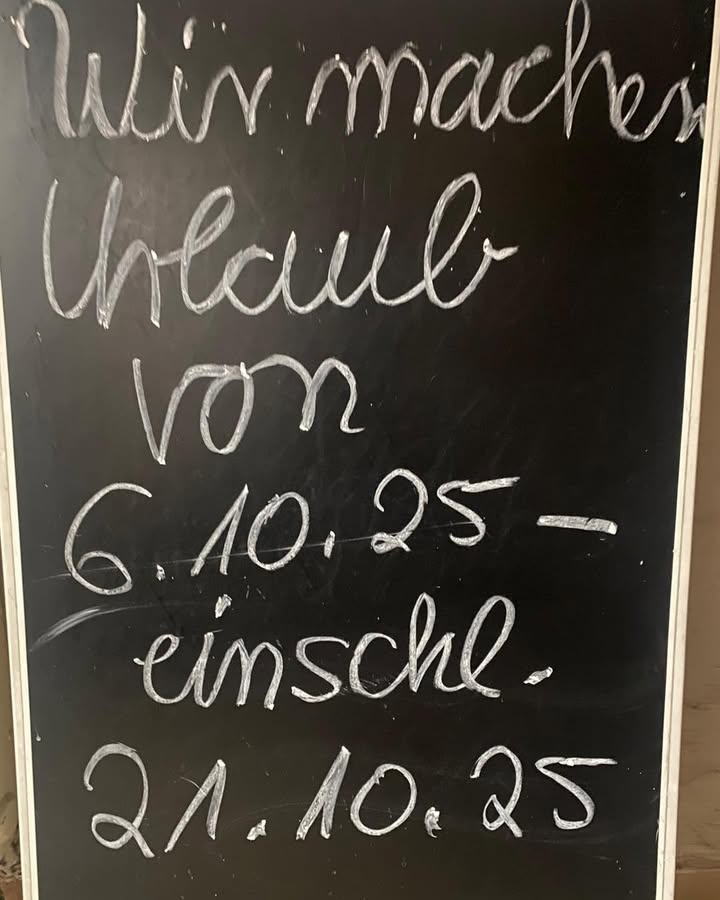 Wir machen
Urlaub
von
6.10.25 –
einschl.
21.10.25